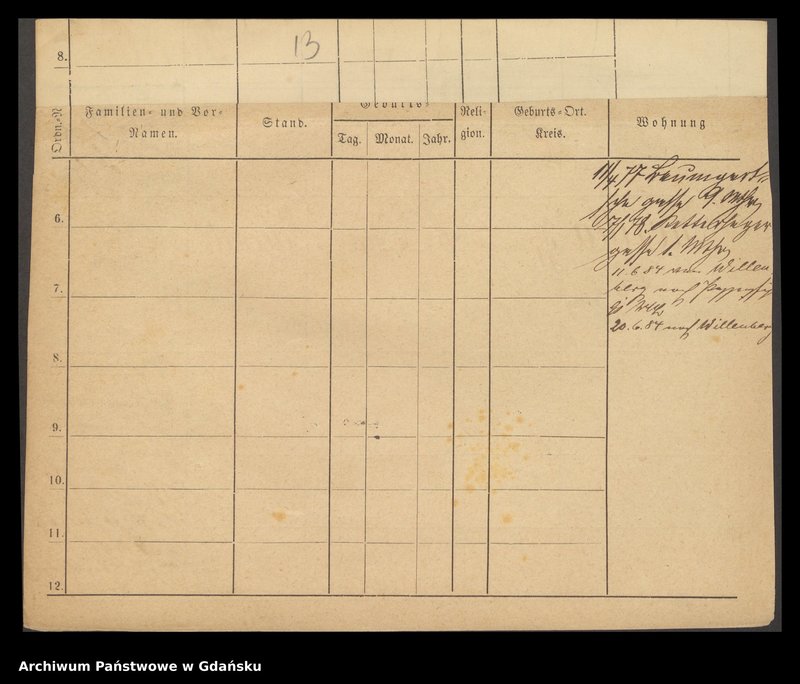 13
8.
Ordn.-N
Familien- und Vor-
Namen.
Stand.
Geburts-
Tag.
Monat.
Jahr.
Reli-
gion.
Geburts-Ort.
Kreis.
Wohnung
6.
7.
8.
9.
10.
11.
12.
11/4 77 Baumgart-
sche gasse 9.
7/1 78. Ketterhager
gasse 1.
11.6.84 von Willen
berg nach
20.6.84 nach Willenberg
Archiwum Państwowe w Gdańsku